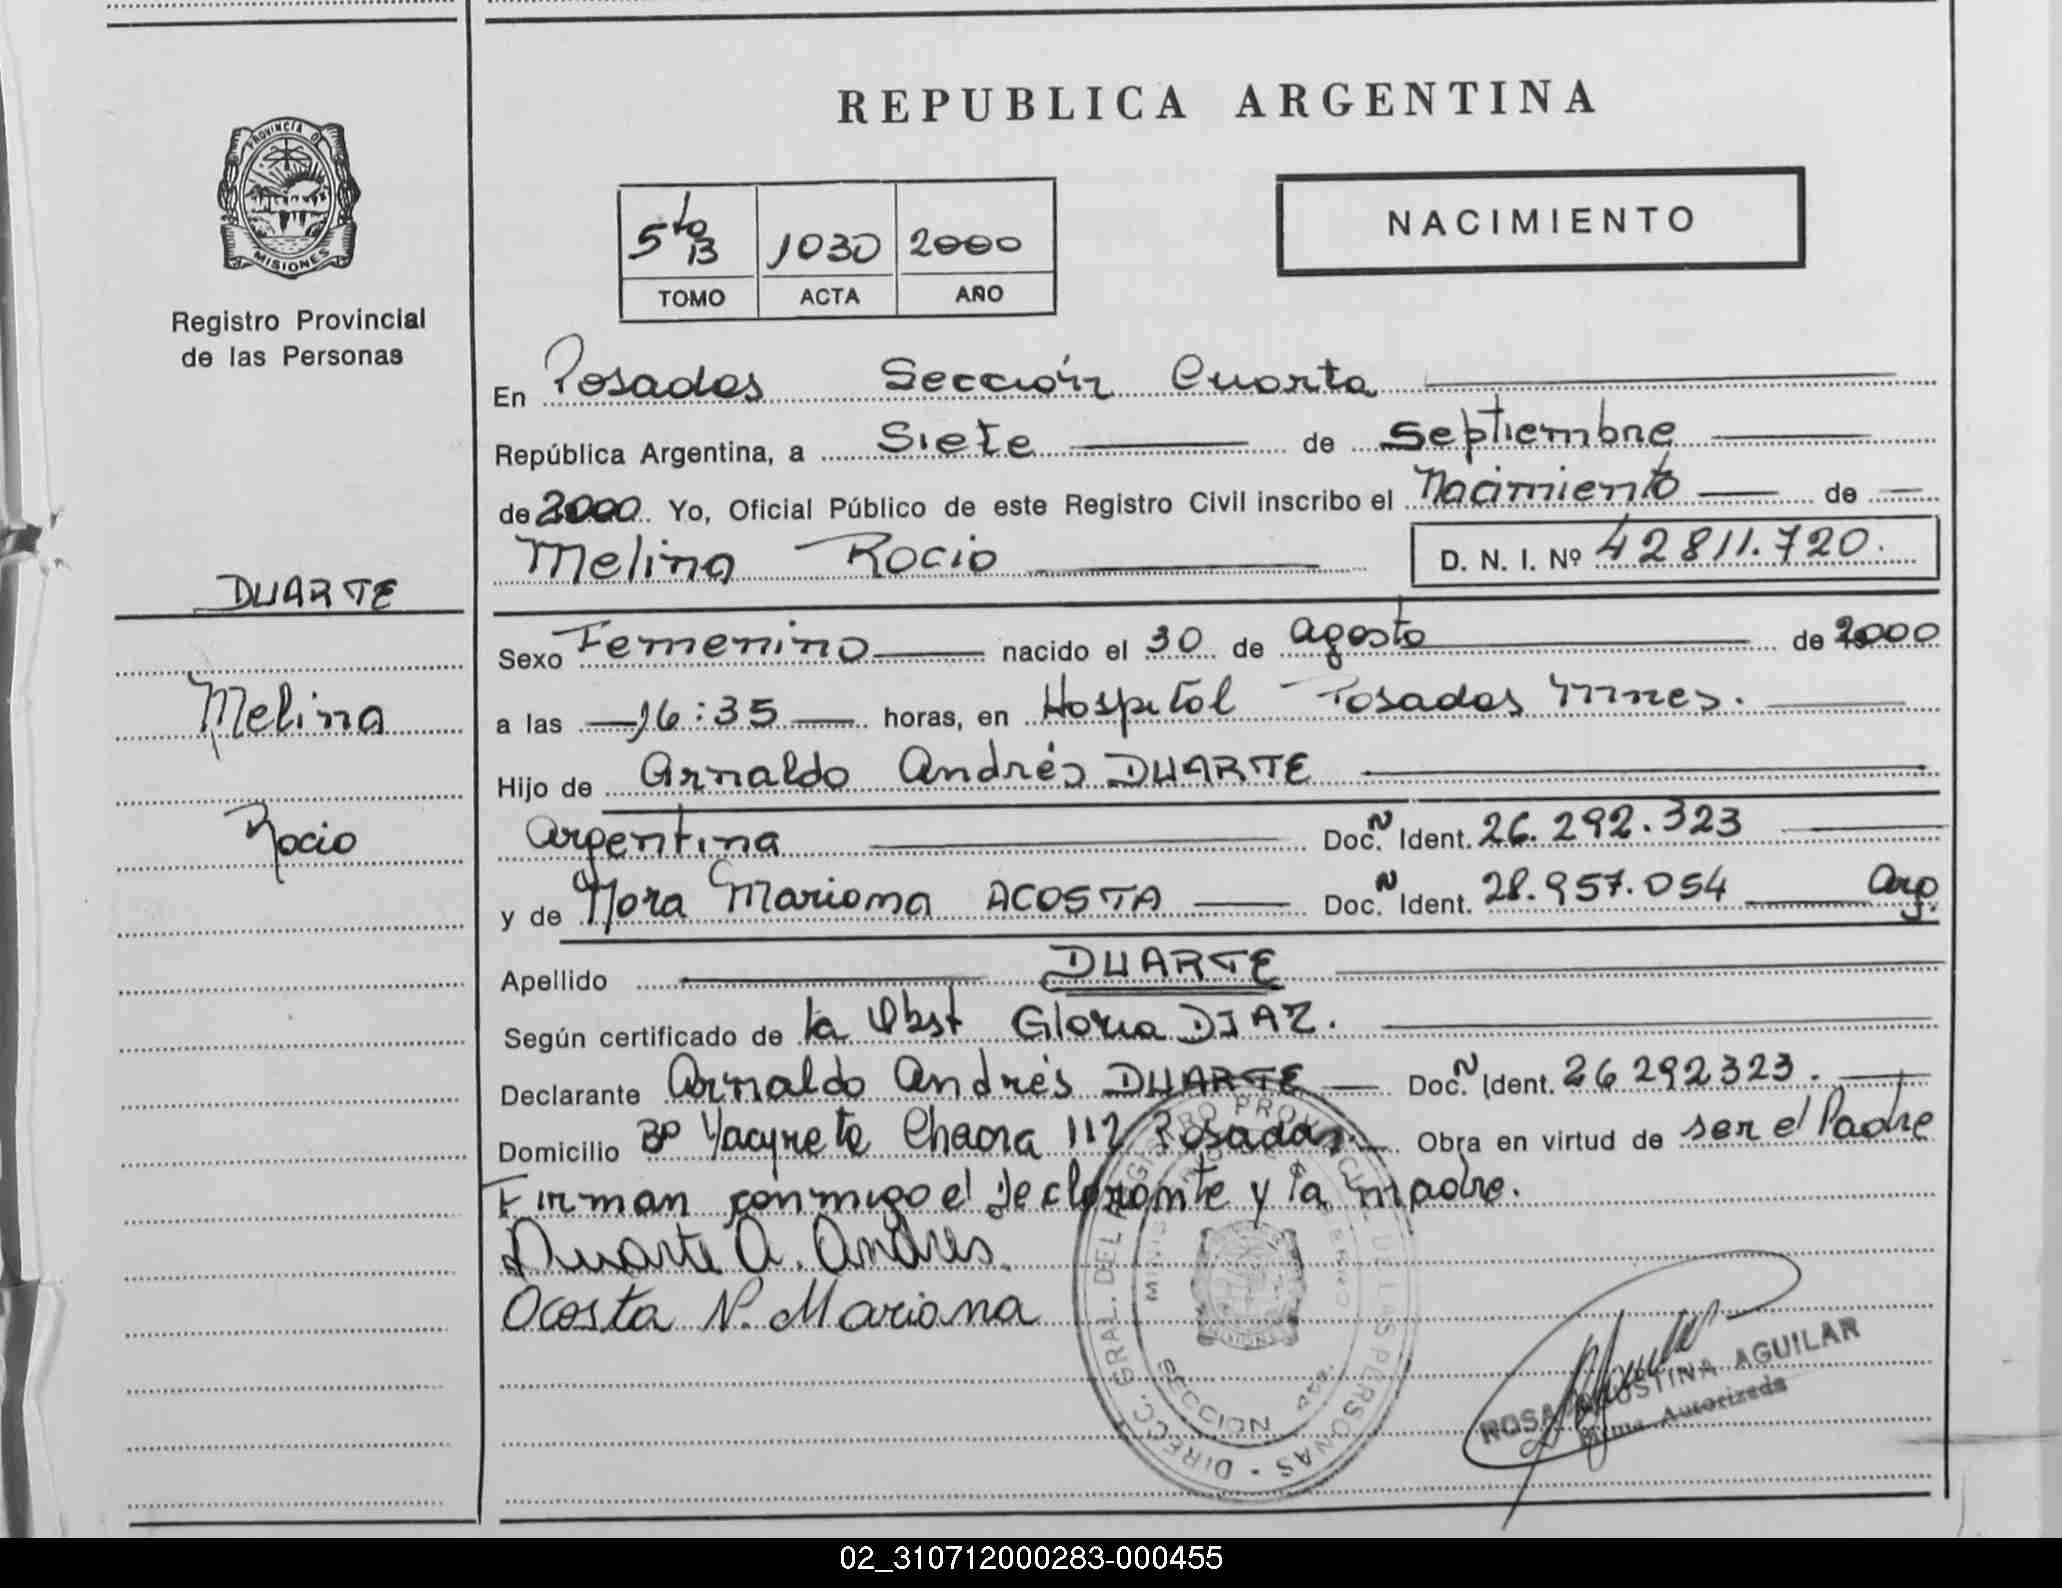 PROVINCIA DE
MISIONES
Registro Provincial
de las Personas
DUARTE
Melina
Rocio
REPUBLICA ARGENTINA
5to B 1030 2000
TOMO ACTA AÑO
NACIMIENTO
En Posadas Sección Cuarta
República Argentina, a Siete de Septiembre
de 2000 Yo, Oficial Público de este Registro Civil inscribo el Nacimiento de
Melina Rocio D. N. I. Nº 42811.720.
Sexo Femenino nacido el 30 de agosto de 2000
a las 16:35 horas, en Hospital Posadas Mnes.
Hijo de Arnaldo Andrés DUARTE
Argentina Doc. N Ident. 26.292.323
y de Nora Mariana ACOSTA Doc. N Ident. 28.957.054 Arg.
Apellido DUARTE
Según certificado de la Obst Gloria DIAZ.
Declarante Arnaldo Andrés DUARTE Doc. N Ident. 26292323.
Domicilio Bº Yacyreta Chacra 112 Posadas. Obra en virtud de ser el Padre
Firman conmigo el declarante y la madre.
Duarte A. Andres.
Acosta N. Mariana
DIRECC. GRAL. DEL REGISTRO PROVINCIAL DE LAS PERSONAS
SECCION 4ta.
ROSA AGUSTINA AGUILAR
Firma Autorizada
02_310712000283-000455